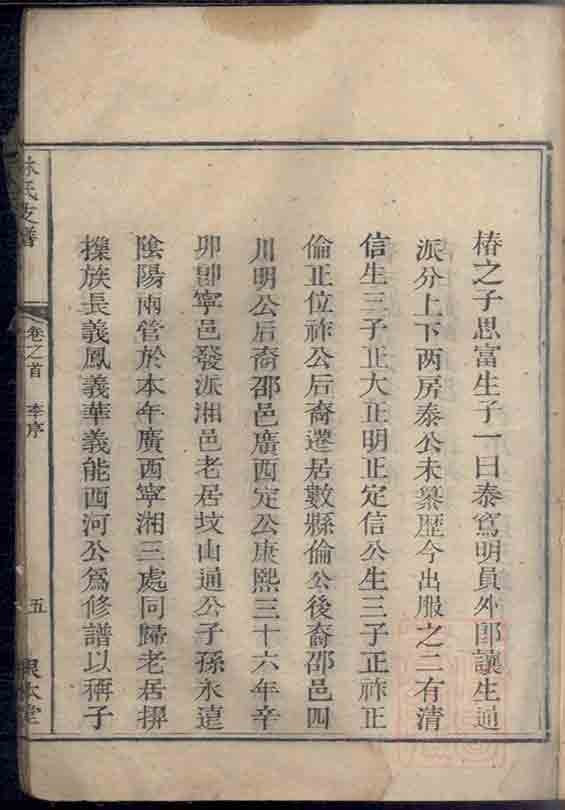 椿之子思富生子一曰泰寫明員外郎讓生通
派分上下两房泰公未纂歴今出服之三有清
信生三子正大正明正定信公生三子正祚正
倫正位祚公后裔遷居數縣倫公後裔邵邑四
川明公后裔邵邑廣西定公康熙三十六年辛
卯卽寧邑發派湘邑老居坟山通公子孫永遠
陰陽兩管於本年廣西寧湘三處同歸老居撰
攥族長義鳳義華義能西河公爲修譜以稱子
林氏支譜
卷之首
李序
五
根本堂